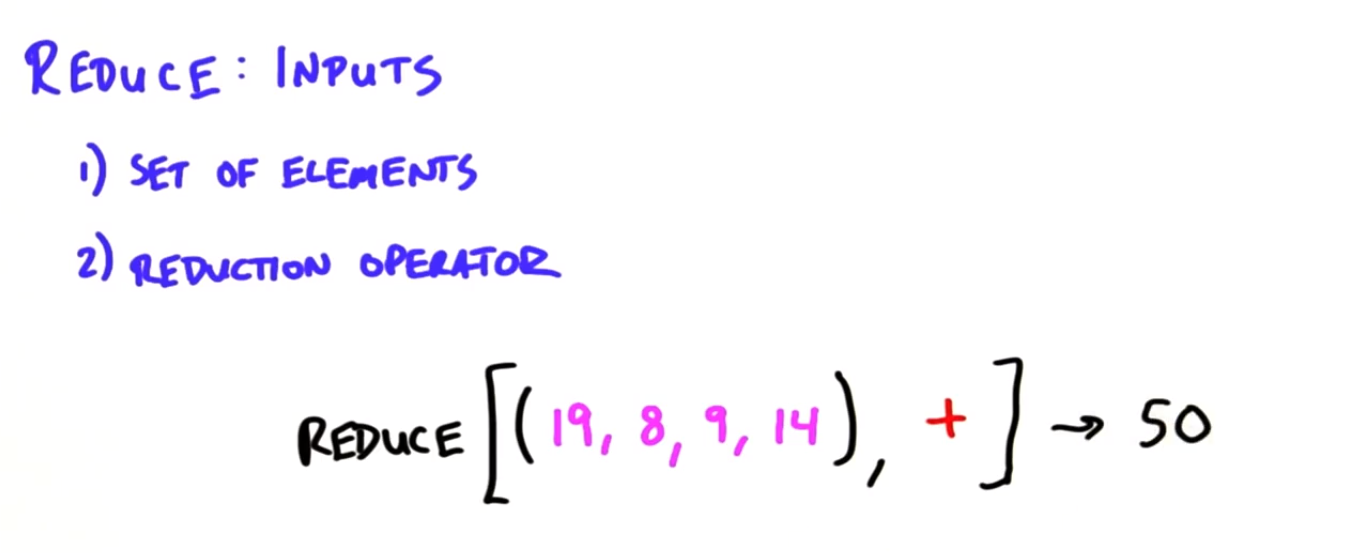 REDUCE: INPUTS
1) SET OF ELEMENTS
2) REDUCTION OPERATOR
REDUCE [(19, 8, 9, 14), +] → 50